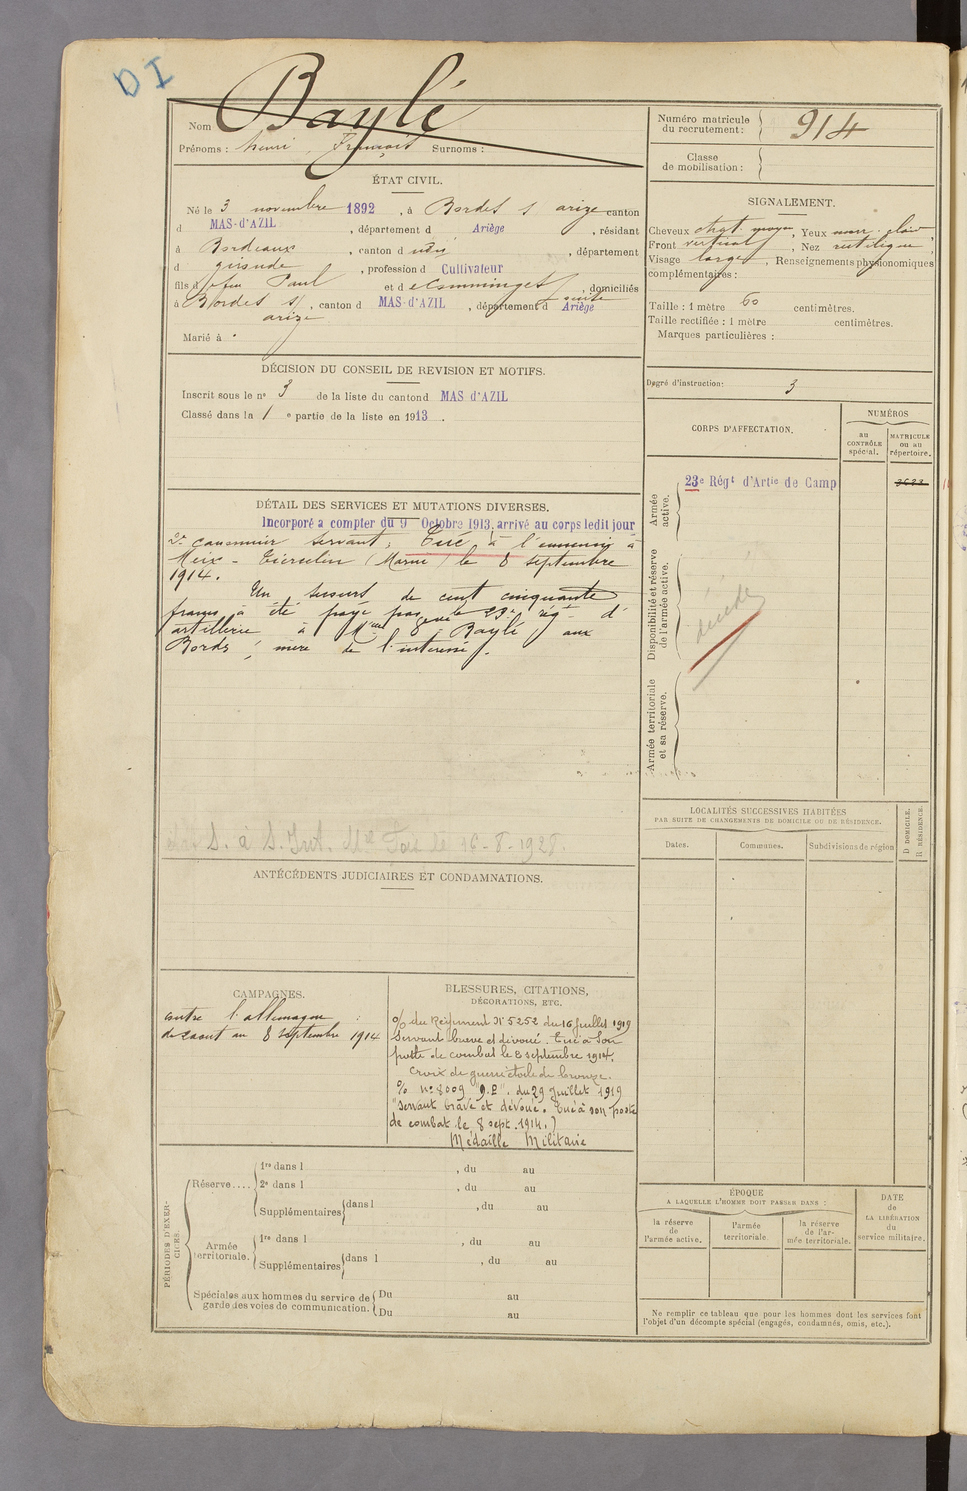 DI
Nom Baylé
Prénoms : henri, François Surnoms :
ÉTAT CIVIL.
Né le 3 novembre 1892, à Bordes s arize canton
d MAS-d'AZIL, département d Ariège, résidant
à Bordeaux, canton d udis, département
d gironde, profession d Cultivateur
fils d feu Paul et d eComminges, domiciliés
à Bordes s/ arize, canton d MAS-d'AZIL, département d Ariège
Marié à
DÉCISION DU CONSEIL DE REVISION ET MOTIFS.
Inscrit sous le nº 3 de la liste du canton d MAS d'AZIL
Classé dans la 1 e partie de la liste en 1913.
DÉTAIL DES SERVICES ET MUTATIONS DIVERSES.
Incorporé a compter du 9 Octobre 1913, arrivé au corps ledit jour
2e canonnier servant, Tué à l'ennemi à
Meix-Tiercelin (Marne) le 8 septembre
1914.
Un secours de cent cinquante
francs à été payé par le 23e rég t d'
artillerie à Baylé aux
Bords, mère de l'interessé.
S. à S. Int. 26-8-1928.
ANTÉCÉDENTS JUDICIAIRES ET CONDAMNATIONS.
CAMPAGNES.
contre l'allemagne :
du août au 8 septembre 1914
BLESSURES, CITATIONS,
DÉCORATIONS, ETC.
o/ du Régiment Nº 5252 du 16 juillet 1919
Servant brave et dévoué. Tué à son
poste de combat le 8 septembre 1914.
Croix de guerre étoile de bronze.
o/ nº 8009 "D", du 29 Juillet 1919
"servant brave et dévoué. Tué à son poste
de combat le 8 sept. 1914.)
Médaille Militaire
PÉRIODES D'EXERCICES.
Réserve....
1re dans l , du au
2e dans l , du au
Supplémentaires dans l , du au
Armée territoriale.
1re dans l , du au
Supplémentaires dans l , du au
Spéciales aux hommes du service de garde des voies de communication.
Du au
Du au
Numéro matricule
du recrutement : 914
Classe
de mobilisation :
SIGNALEMENT.
Cheveux chat. moyen, Yeux marr. clair
Front vertical, Nez rectiligne
Visage large, Renseignements physionomiques
complémentaires :
Taille : 1 mètre 60 centimètres.
Taille rectifiée : 1 mètre centimètres.
Marques particulières :
Degré d'instruction: 3
CORPS D'AFFECTATION.
NUMÉROS
au CONTRÔLE spécial.
MATRICULE ou au répertoire.
Armée active.
23e Rég t d'Art ie de Camp
Disponibilité et réserve de l'armée active.
décédé
Armée territoriale et sa réserve.
LOCALITÉS SUCCESSIVES HABITÉES
PAR SUITE DE CHANGEMENTS DE DOMICILE OU DE RÉSIDENCE.
D DOMICILE.
R RÉSIDENCE.
Dates. Communes. Subdivisions de région
ÉPOQUE
A LAQUELLE L'HOMME DOIT PASSER DANS :
la réserve de l'armée active.
l'armée territoriale.
la réserve de l'armée territoriale.
DATE
de
LA LIBÉRATION
du
service militaire.
Ne remplir ce tableau que pour les hommes dont les services font
l'objet d'un décompte spécial (engagés, condamnés, omis, etc.).